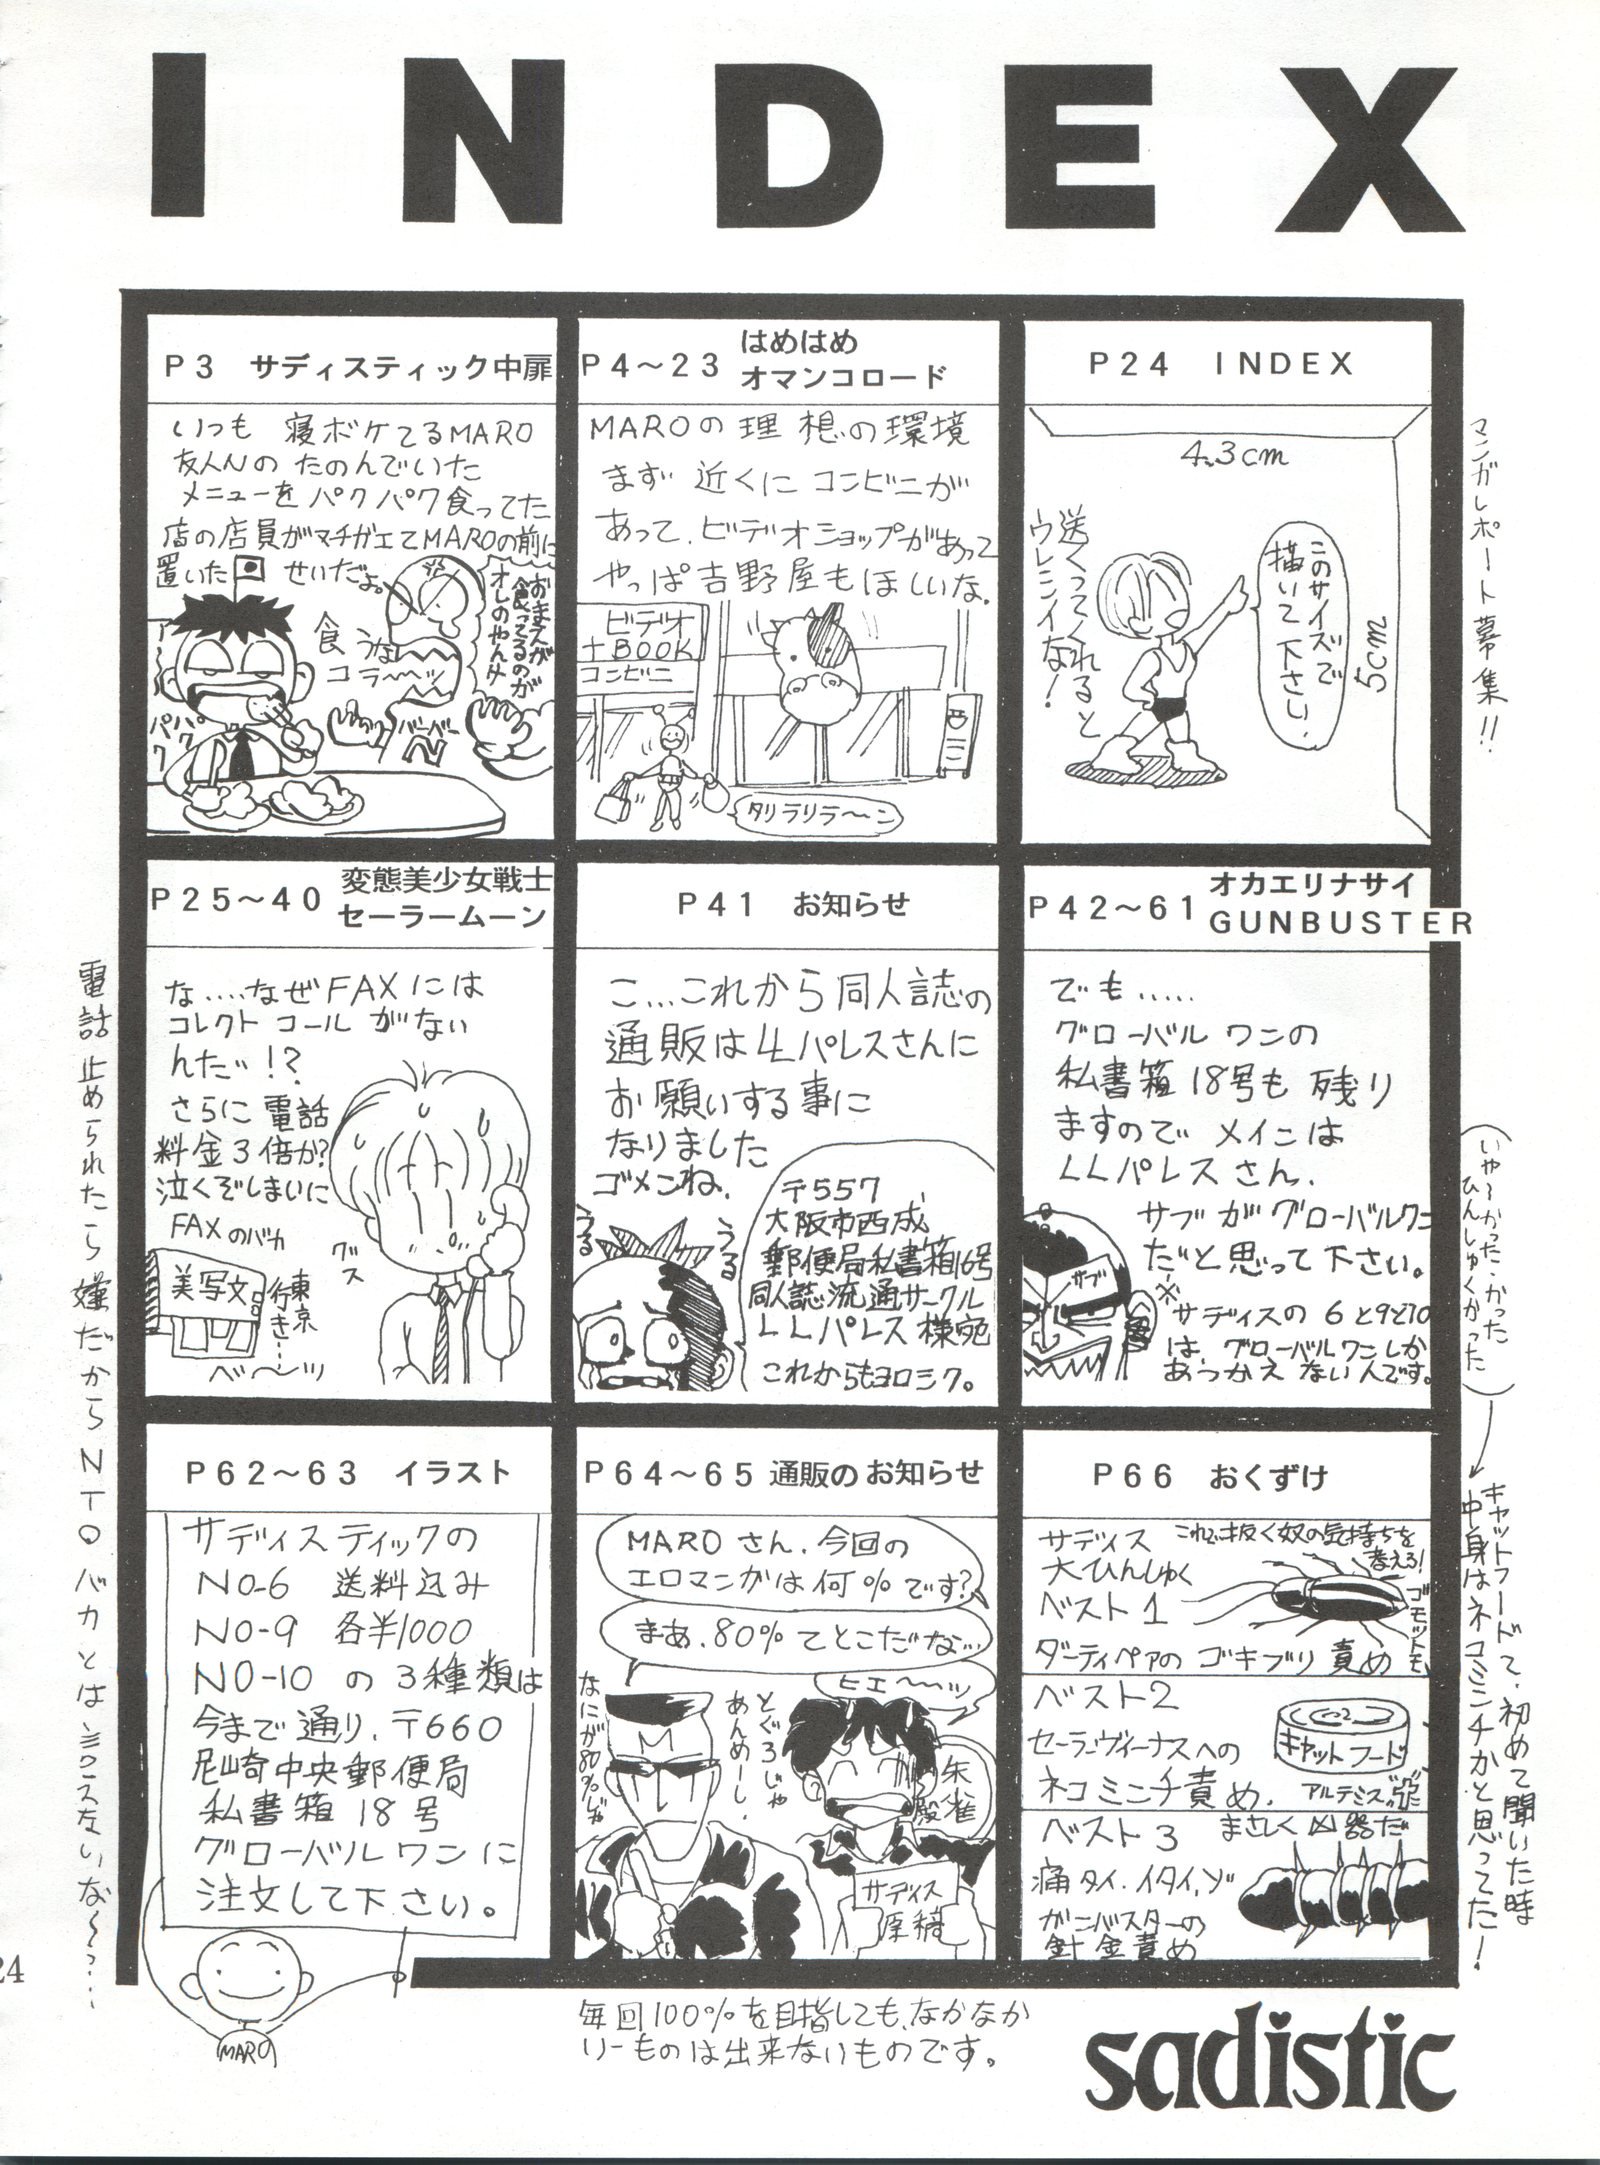 INDEX
P3 サディスティック中扉
いつも 寝ボケてるMARO
友人Nの たのんでいた
メニューを パクパク食ってた
店の店員がマチガエてMAROの前に
置いた せいだよ。
おまえが
食ってるのが
オレのやんけ
食うな
コラ〜〜ッ
パクパク
バーバー
P4〜23 はめはめ
オマンコロード
MAROの 理想の環境
まず 近くに コンビニが
あって、ビデオショップがあって
やっぱ 吉野屋もほしいな。
ビデオ
+BOOK
コンビニ
タリラリラ〜〜ン
P24 INDEX
4.3cm
5cm
このサイズで
描いて下さい。
送ってくれると
ウレシイな!
マンガレポート募集!!
P25〜40 変態美少女戦士
セーラームーン
な....なぜFAXには
コレクトコールがない
んだ!?
さらに電話
料金3倍か?
泣くぞしまいに
FAXのバカ
グス
美写文
東京
行き…
ベ〜〜ッ
電話止められたら嫌だからNTOバカとは言うてないな〜っ…
P41 お知らせ
こ...これから同人誌の
通販はLLパレスさんに
お願いする事に
なりました
ゴメンね。
うる
うる
〒557
大阪市西成
郵便局私書箱16号
同人誌流通サークル
LLパレス 様宛
これからもヨロシク。
P42〜61 オカエリナサイ
GUNBUSTER
でも.....
グローバルワンの
私書箱18号も残り
ますので メインは
LLパレスさん、
サブがグローバルワン
だと思って下さい。
サブ
※サディスの6と9と10
は、グローバルワンしか
あつかえないんです。
(いや〜かった・かった
ひんしゅくかった)
キャットフードって、初めて聞いた時
中身はネコミンチかと思ってた!
P62〜63 イラスト
サディスティックの
NO-6 送料込み
NO-9 各半1000
NO-10 の3種類は
今まで通り、〒660
尼崎中央郵便局
私書箱 18号
グローバルワンに
注文して下さい。
MARO
P64〜65 通販のお知らせ
MAROさん、今回の
エロマンガは何%です?
まあ、80%てとこだな…
ヒエ〜〜ッ
なにが80%じゃ
とぐろじゃ
あんめーし。
M
朱雀
サディス
原稿
P66 おくずけ
サディス
大ひんしゅく
ベスト1
これで抜く奴の気持ちを
考えろ!
ダーティペアの ゴキブリ責め
ベスト2
セーラーヴィーナスへの
ネコミンチ責め。
キャットフード
ベスト3
まさしく凶器だ
痛タイ、イタイ、ゾ
ガンバスターの
針金責め
毎回100%を目指しても、なかなか
いーものは出来ないものです。
sadistic
24